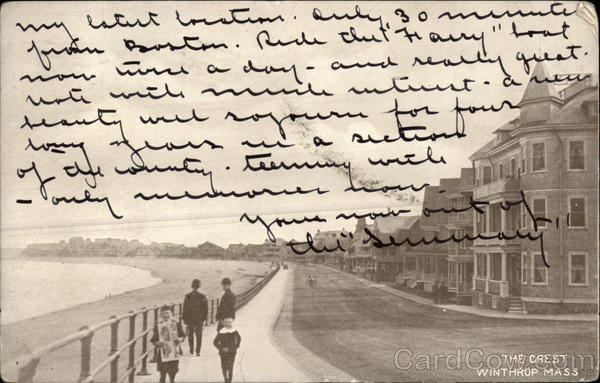 my latest location. Only 30 minutes
from Boston. Ride the "Faery" boat
now twice a day - and really great.
note with much interest - a new
beauty will sojourn for four
long years in a section
of the country - teeming with
- only memories now -
Yours now out of
the "Seminary"
THE CREST
WINTHROP MASS
CardCow.com